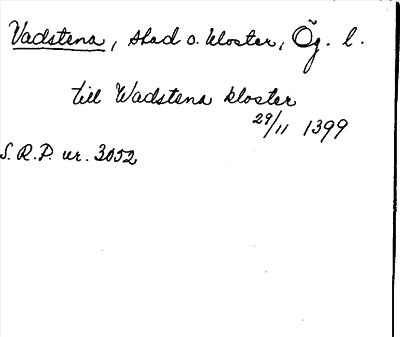 Vadstena, stad o. kloster, Ög. l.
till Wadstena kloster
29/11 1399
S. R. P. nr. 3052